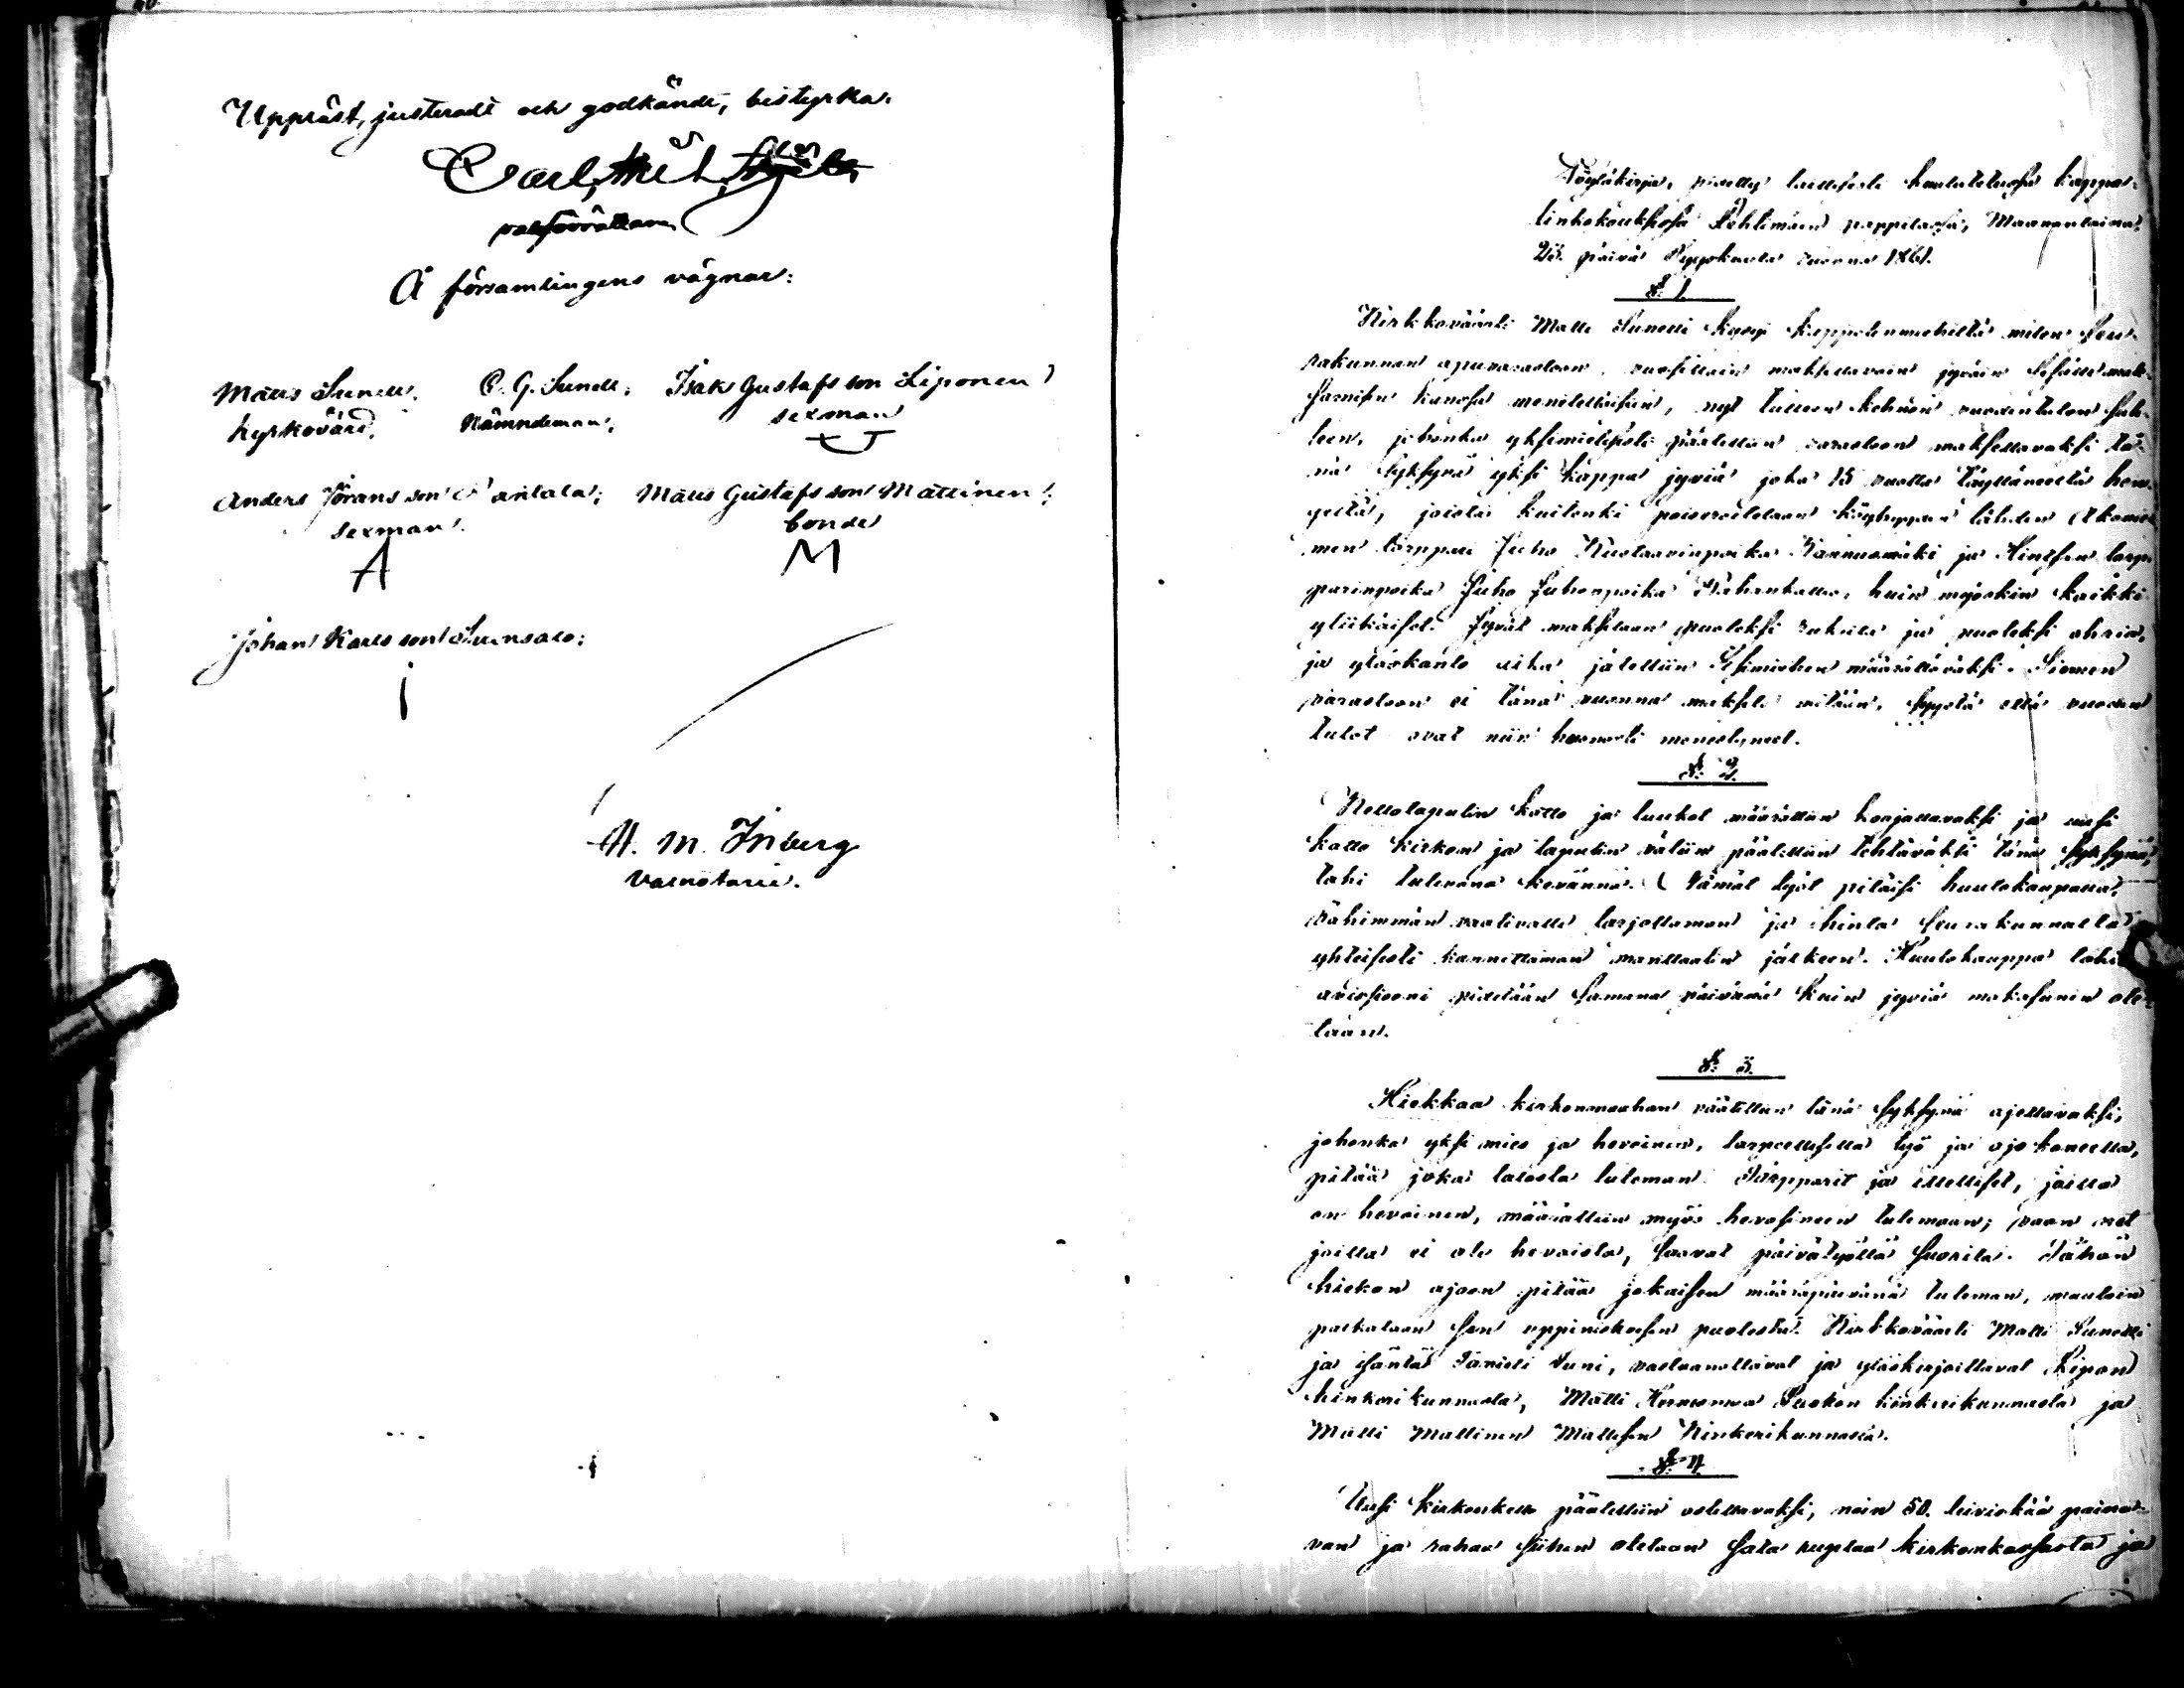 Uppläst, justeradt och godkändt, bestyrka.
Carl
valförrättare
Å församlingens vägnar:
Matts Sunell, C. G. Sunell, Isak Gustafsson Liponen
kyrkovärd. Nämndeman. sexman
Anders Göransson Pantala; Matts Gustafsson Mattinen;
sexman. bonde
A M
Johan Karlsson Suensalo;
I
A. M. Inberg
Valnotarie.
Pöytäkirja, pidetty laillisesti kuulutetussa kappa-
linkokouksessa Lehtimäen pappilassa, Maanantaina
23. päivä Syyskuuta vuonna 1861.
§. 1.
Kirkkoväärti Matti Sunelli kysyi kappelinmiehiltä miten Seu-
rakunnan apuvarastoon vuosittain maksettavain jyväin
kanssa meneteltäisiin, nyt tulleen kehnon vuodentulon suh-
teen, johonka yksimielisesti päätettiin varastoon maksettavaksi tä-
nä syksynä yksi kappa jyviä joka 15 vuotta täyttäneeltä hen-
geltä, joista kuitenki poiseroitetaan köyhyyden tähden
torppari Juho Kustaavinpoika Kannusmäki ja torp-
parinpoika Juho Juhonpoika kuin myöskin kaikki
yliikäiset. Jyvät maksetaan puoleksi rukiita ja puoleksi ohria,
ja yläskanto aika jätettiin Esimiehen määrättäväksi. Siemen
varastoon ei tänä vuonna makseta mitään, syystä että vuoden
tulot ovat niin huonosti menestyneet.
§. 2.
Kellotapulin katto ja luukut määrättiin korjattavaksi ja uusi
katto kirkon ja tapulin väliin päätettiin tehtäväksi tänä syksynä,
tahi tulevana keväännä. Nämät työt pitäisi huutokaupalla,
vähimmän vaativalle tarjottaman ja hinta seurakunnalta
yhteisesti kannettaman manttaalin jälkeen. Huutokauppa tahi
auksiooni pidetään samana päivänä kuin jyviä makasiinin ote-
taan.
§. 3.
Hiekkaa kirkonmaahan päätettiin tänä syksynä ajettavaksi,
johonka yksi mies ja hevoinen, tarpeellisella työ ja ajo koneella,
pitää joka talosta tuleman. Torpparit ja itselliset, joilla
on hevoinen, määrättiin myös hevosineen tulemaan; vaan net
joilla ei ole hevoista, saavat päivätyöllä suorita. Tähän
hiekan ajoon pitää jokaisen määräpäivänä tuleman, muutoin
palkataan sen uppiniskaisen puolesta. Kirkkoväärti Matti Sunelli
ja isäntä Tanieli Suni, vastaanottavat ja yläskirjoittavat Lipon
kinkerikunnasta, Matti kinkerikunnasta ja
Matti Mattinen Mattisen Kinkerikunnasta.
§. 4.
Uusi kirkonkello päätettiin ostettavaksi, noin 50. leiviskää paina-
van ja rahaa siihen otetaan sata ruplaa kirkonkassasta ja